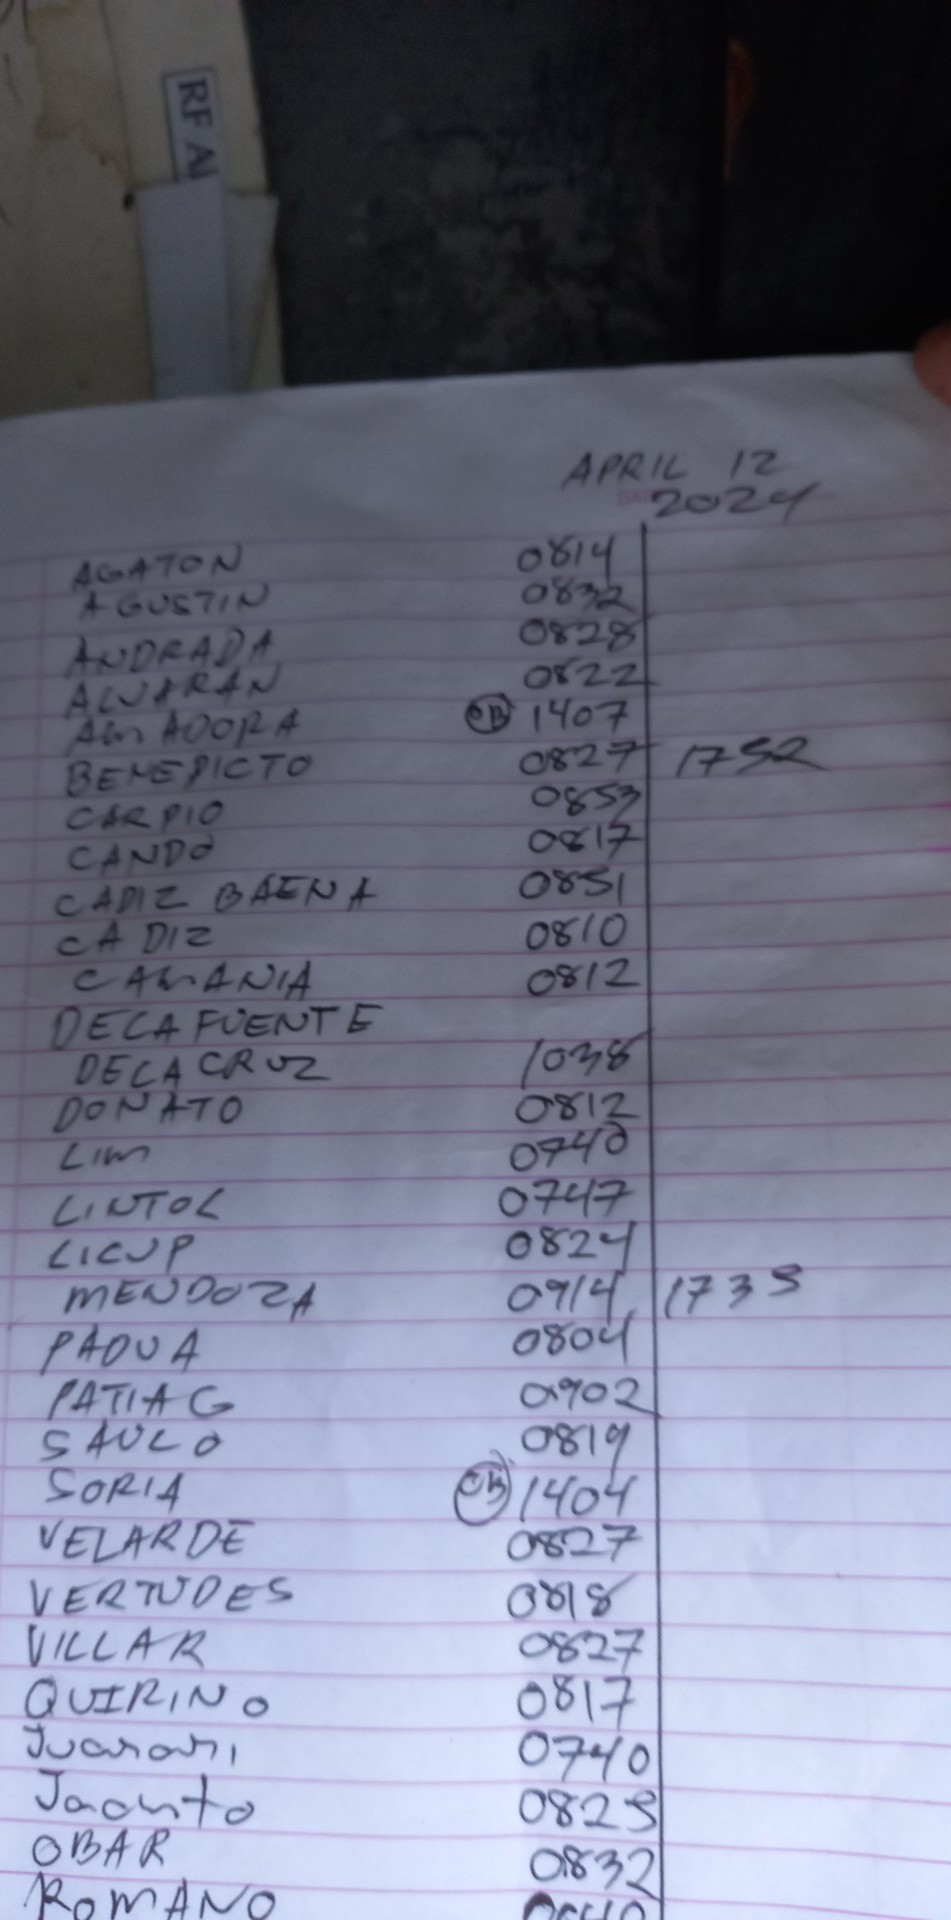 RF A
APRIL 12
2024
AGATON 0814
AGUSTIN 0832
ANDRADA 0828
ALVARAN 0822
AMADORA OB 1407
BENEDICTO 0827 1752
CARPIO 0853
CANDO 0817
CADIZ BAENA 0851
CADIZ 0810
CAMANIA 0812
DECAFUENTE
DELA CRUZ 1038
DONATO 0812
LIM 0740
LINTOL 0747
LICUP 0824
MENDOZA 0914 1735
PADUA 0804
PATIAG 0902
SAULO 0819
SORIA OB 1404
VELARDE 0827
VERTUDES 0818
VILLAR 0827
QUIRINO 0817
0740
Jacinto 0825
OBAR 0832
ROMANO